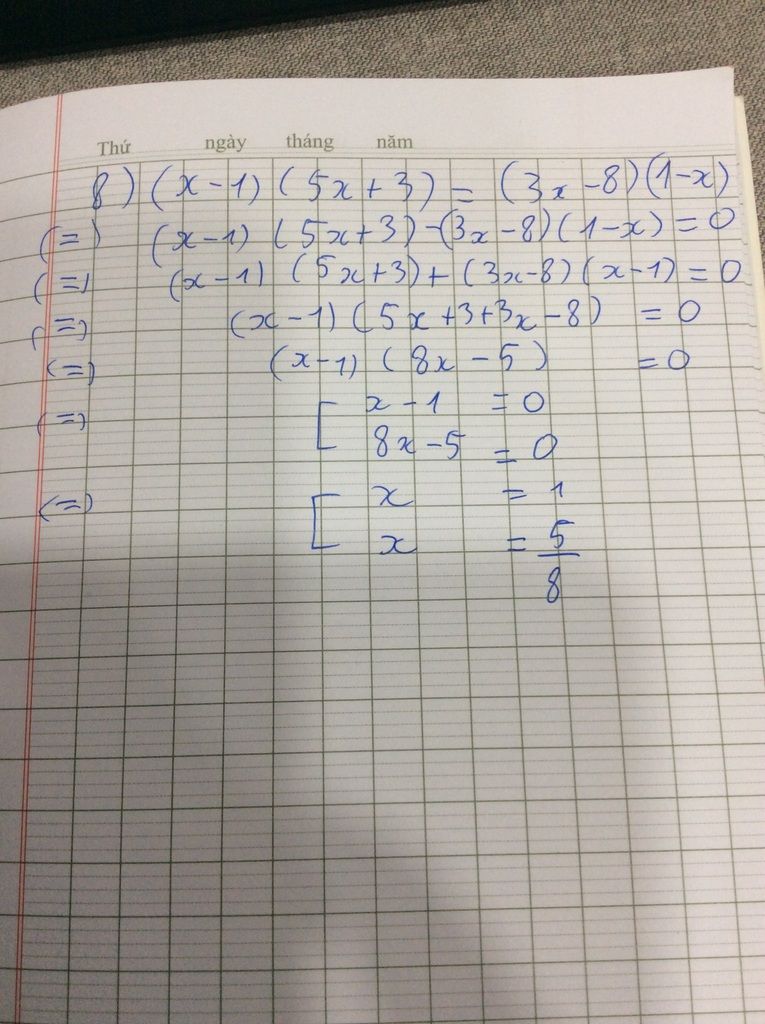 Thứ ngày tháng năm
8) (x-1) (5x+3) = (3x-8)(1-x)
(=) (x-1) (5x+3)-(3x-8)(1-x) = 0
(=) (x-1) (5x+3)+(3x-8)(x-1) = 0
(=) (x-1)(5x+3+3x-8) = 0
(=) (x-1) (8x-5) = 0
(=) [ x-1 = 0
8x-5 = 0
(=) [ x = 1
x = 5/8